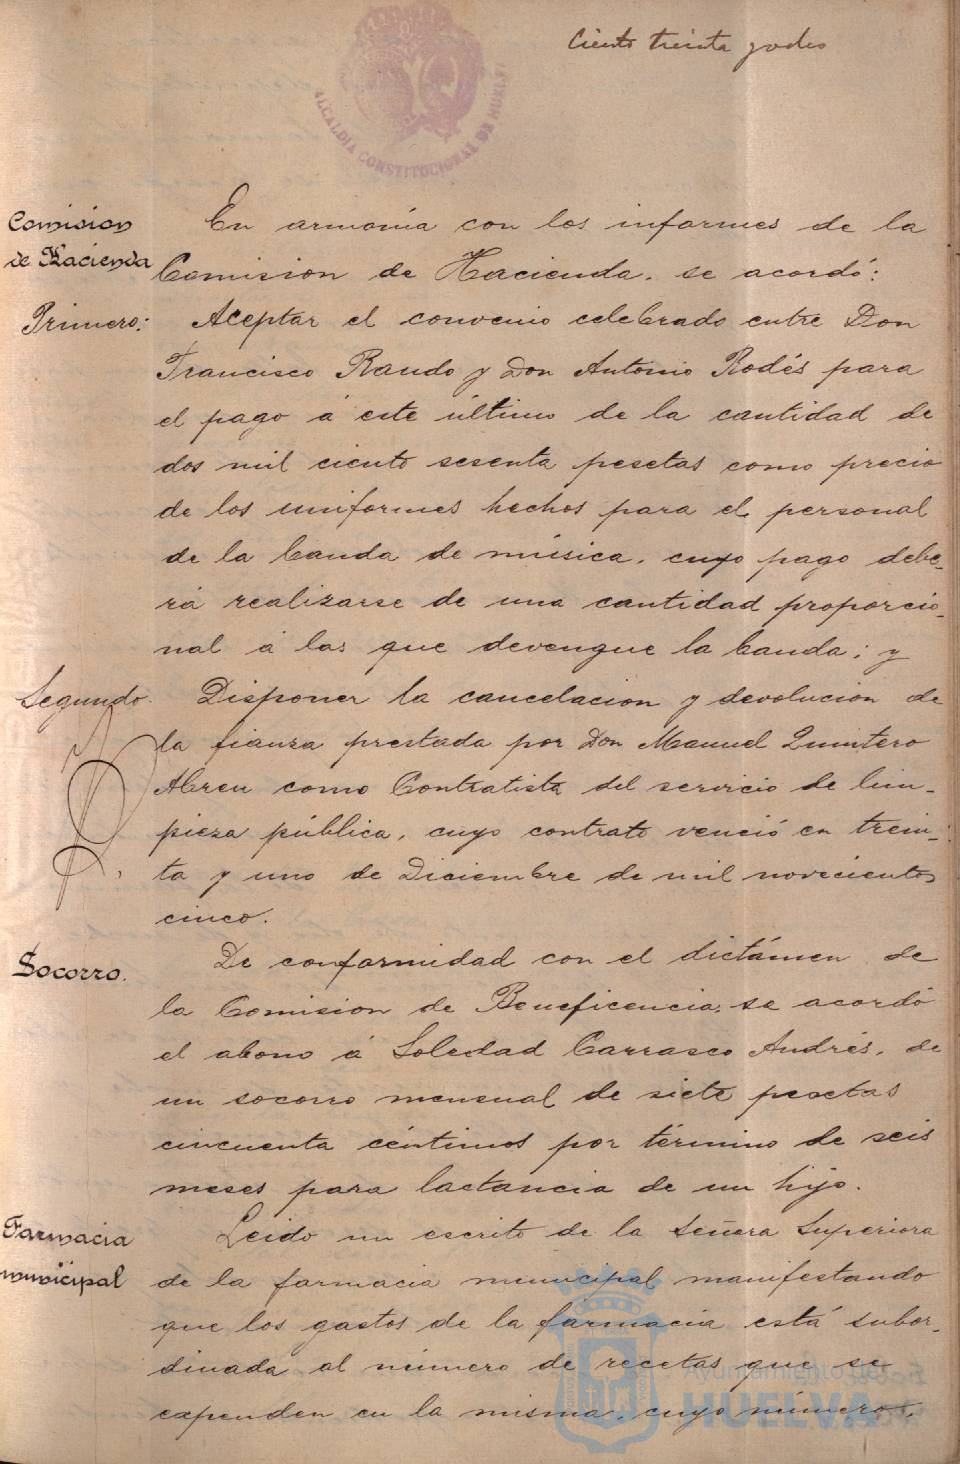 Ciento treinta y dos
ALCALDIA CONSTITUCIONAL DE HUELVA
Comision
de Hacienda
En armonia con los informes de la
Comision de Hacienda, se acordó:
Primero:
Aceptar el convenio celebrado entre Don
Francisco Rando y Don Antonio Rodés para
el pago á este último de la cantidad de
dos mil ciento sesenta pesetas como precio
de los uniformes hechos para el personal
de la banda de música, cuyo pago debe-
rá realizarse de una cantidad proporcio-
nal á las que devengue la banda; y
Segundo.
Disponer la cancelacion y devolucion de
la fianza prestada por Don Manuel Quintero
Abreu como Contratista del servicio de lim-
pieza pública, cuyo contrato venció en trein-
ta y uno de Diciembre de mil novecientos
cinco.
Socorro.
De conformidad con el dictámen de
la Comision de Beneficencia, se acordó
el abono á Soledad Carrasco Andrés, de
un socorro mensual de siete pesetas
cincuenta céntimos por término de seis
meses para lactancia de un hijo.
Farmacia
municipal
Leido un escrito de la Señora Superiora
de la farmacia municipal manifestando
que los gastos de la farmacia está subor-
dinada al número de recetas que se
expenden en la misma, cuyo número,
Ayuntamiento de
HUELVA